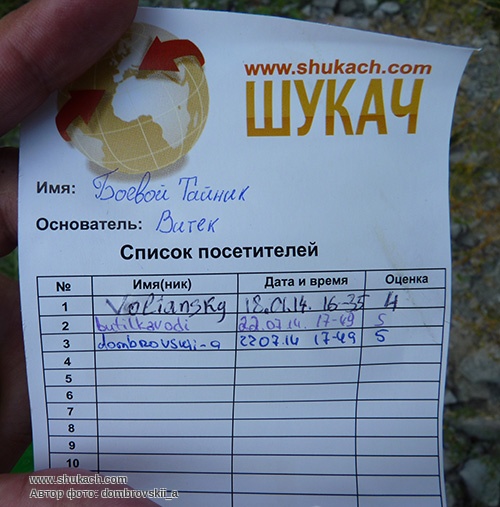 www.shukach.com
ШУКАЧ
Имя: Боевой Тайник
Основатель: Витек
Список посетителей
№ Имя(ник) Дата и время Оценка
1 Voliansky 18.01.14. 16-35 4
2 butilkavodi 22.07.14. 17-49 5
3 dombrovskii-a 2207.14 17-49 5
4
5
6
7
8
9
10
www.shukach.com
Автор фото: dombrovskii_a